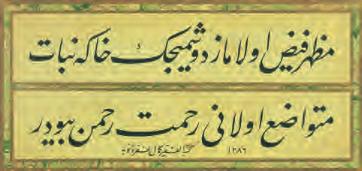 مظهر فيض اولاماز دوشميجك خاكه نبات
متواضع اولانی رحمت رحمن بيودر
١٢٨٦